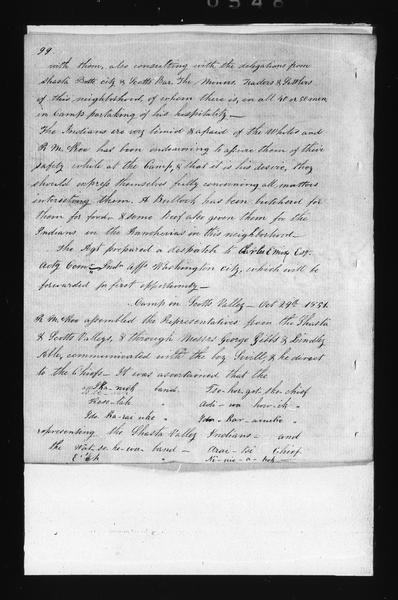 99.
with them, also consulting with the delegations from
Shasta Butte city & Scotts Bar. The Miners, Traders & Settlers
of this neighborhood, of whom there is, in all 40 or 50 men
in Camp partaking of his hospitality —
The Indians are very timid & afraid of the Whites and
R. McKee has been endeavouring to assure them of their
safety while at the Camp, & that it is his desire, they
should express themselves fully concerning all matters
interesting them. A Bullock has been butchered for
them for food & some Beef also given them for the
Indians in the Rancherias in this neighborhood —
The Agt prepared a despatch to Charles E Mix Esq.
Actg Com Ind affs Washington City, which will be
forwarded pr first opportunity —
Camp in Scotts Valley — Oct 29th 1851.
R. McKee assembled the Representatives from the Shasta
& Scotts Valleys, & through Messrs George Gibbs & Lindley
Able, communicated with the boy Swill, & he direct
to the Chiefs — It was ascertained that the
band. chief
representing the Shasta Valley Indians — and
the band — Chief